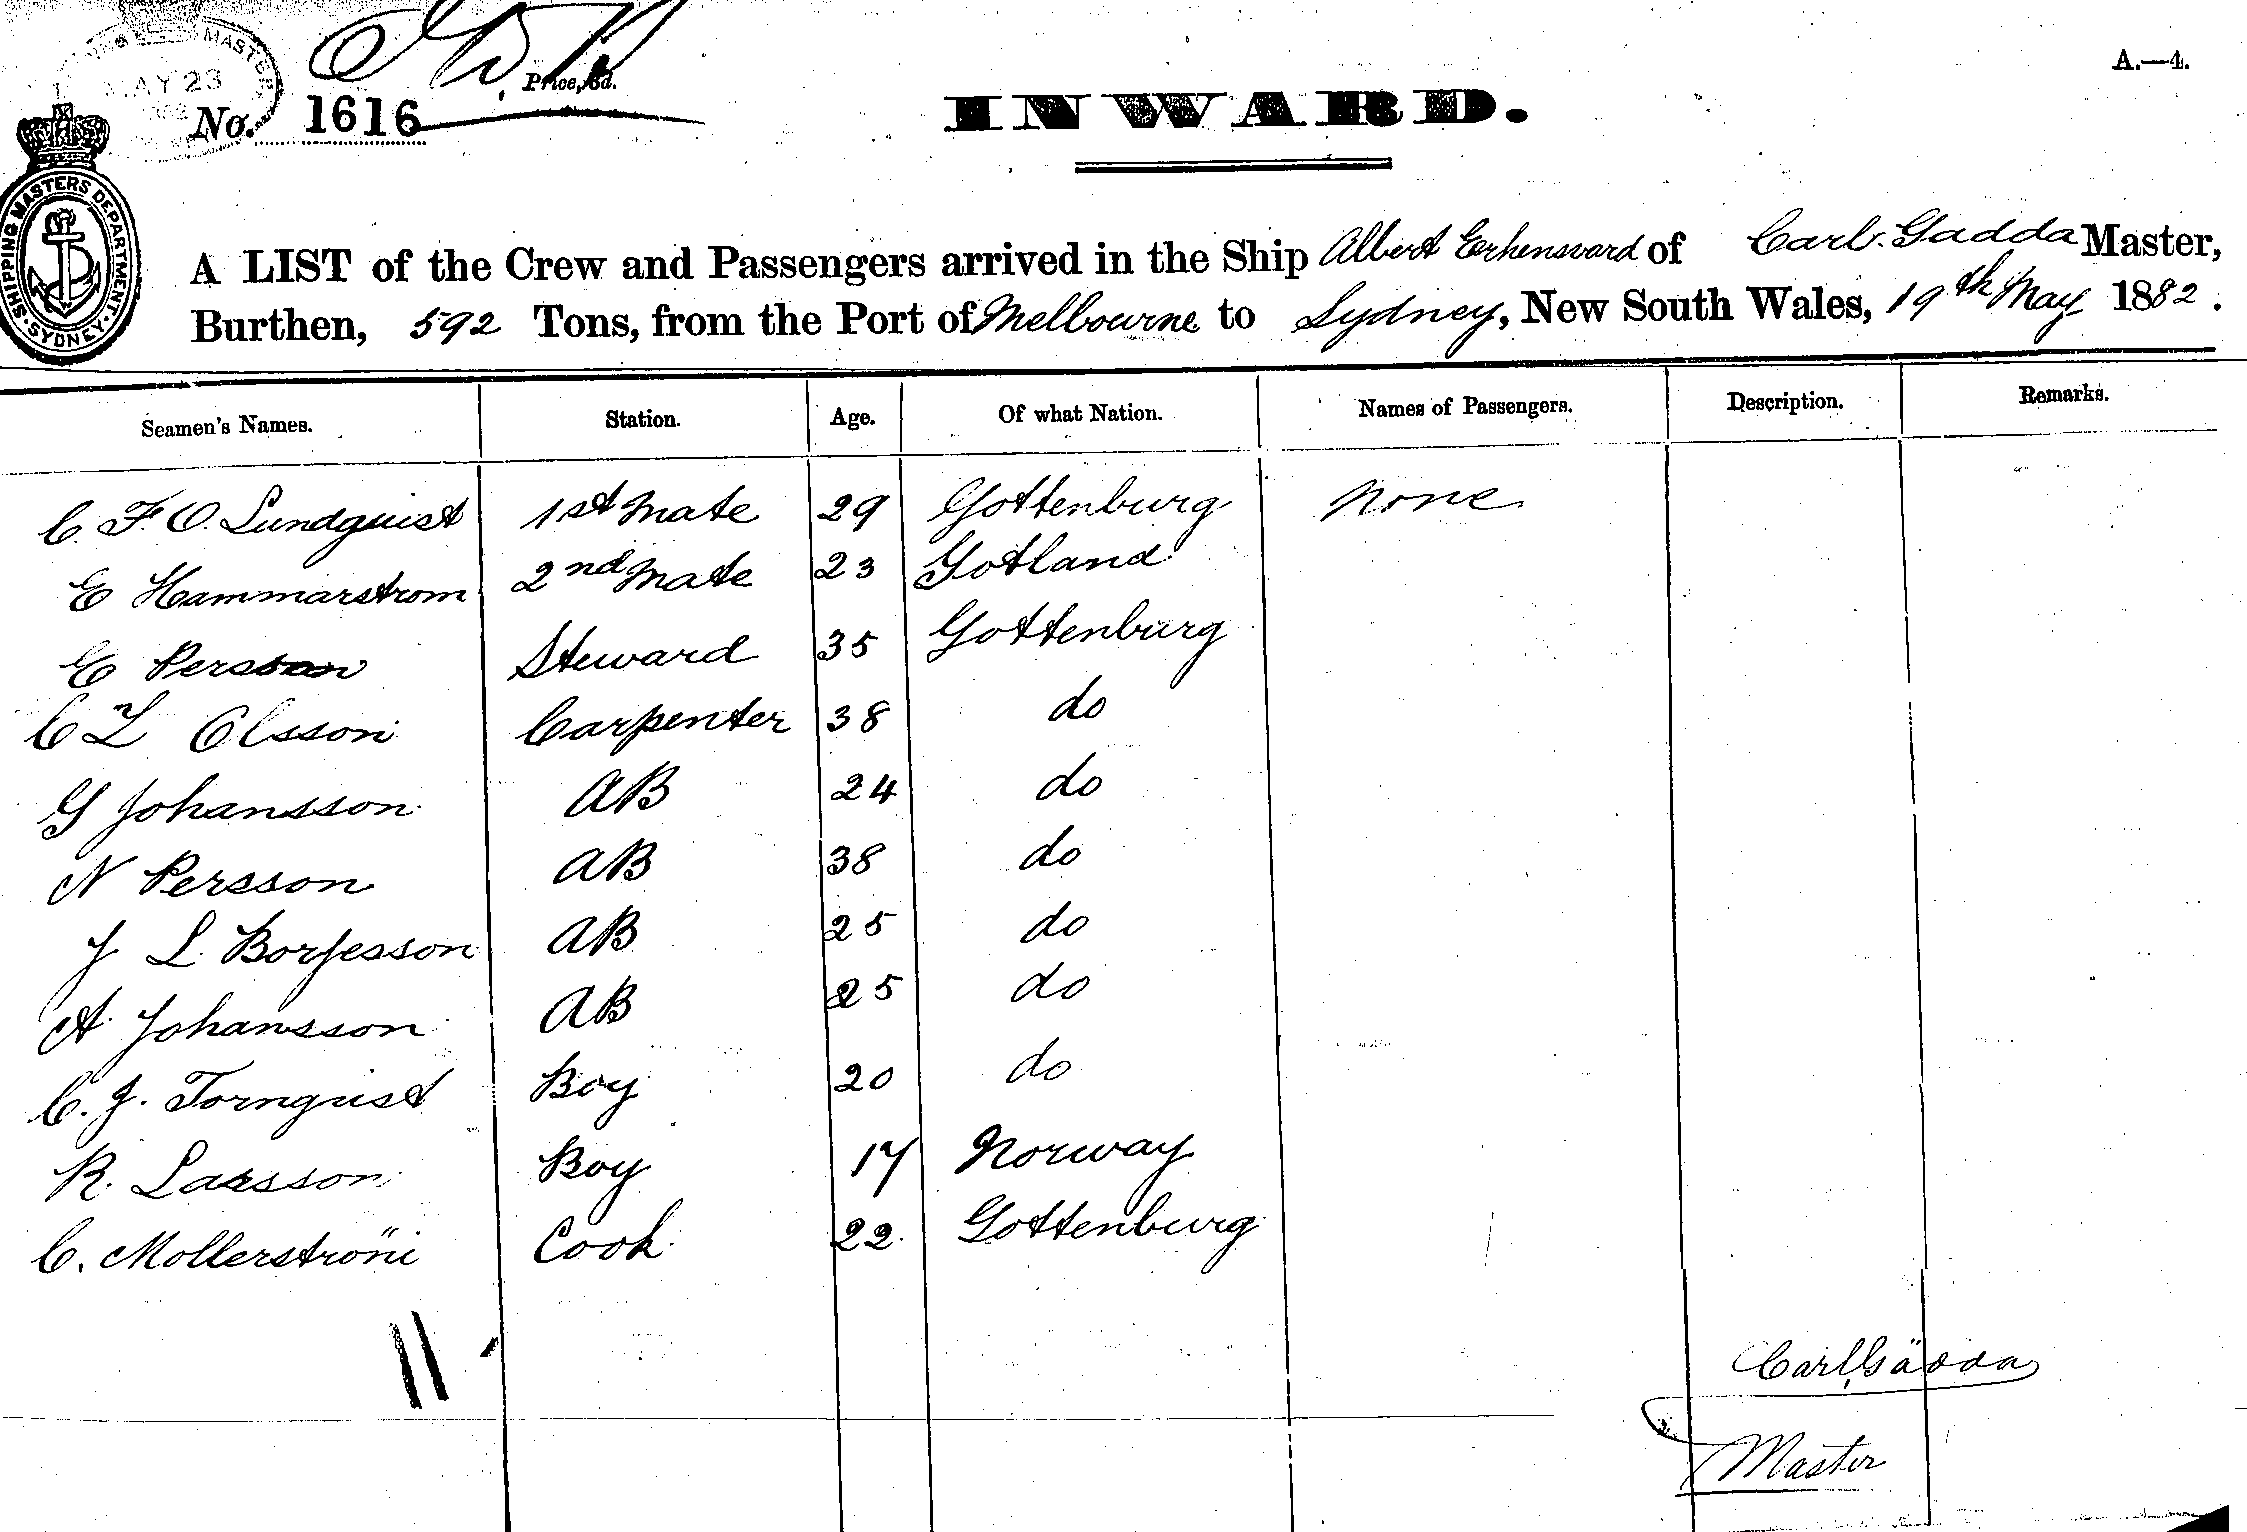 MASTER
MAY 23
Price, 3d.
A.—4.
No. 1616
INWARD.
SHIPPING MASTERS DEPARTMENT. SYDNEY.
A LIST of the Crew and Passengers arrived in the Ship Albert Erhensvard of Carl. Gadda Master,
Burthen, 592 Tons, from the Port of Melbourne to Sydney, New South Wales, 19th May 1882.
Seamen's Names. Station. Age. Of what Nation. Names of Passengers. Description. Remarks.
C. F. O. Lundquist 1st Mate 29 Gottenburg None
E Hammarstrom 2nd Mate 23 Gotland
E Persson Steward 35 Gottenburg
C L Olsson Carpenter 38 do
G Johansson AB 24 do
N Persson AB 38 do
J L. Borjesson AB 25 do
A. Johansson AB 25 do
C. J. Tornquist Boy 20 do
R. Larsson Boy 17 Norway
C. Mollerström Cook 22. Gottenburg
11
Carl Gädda
Master